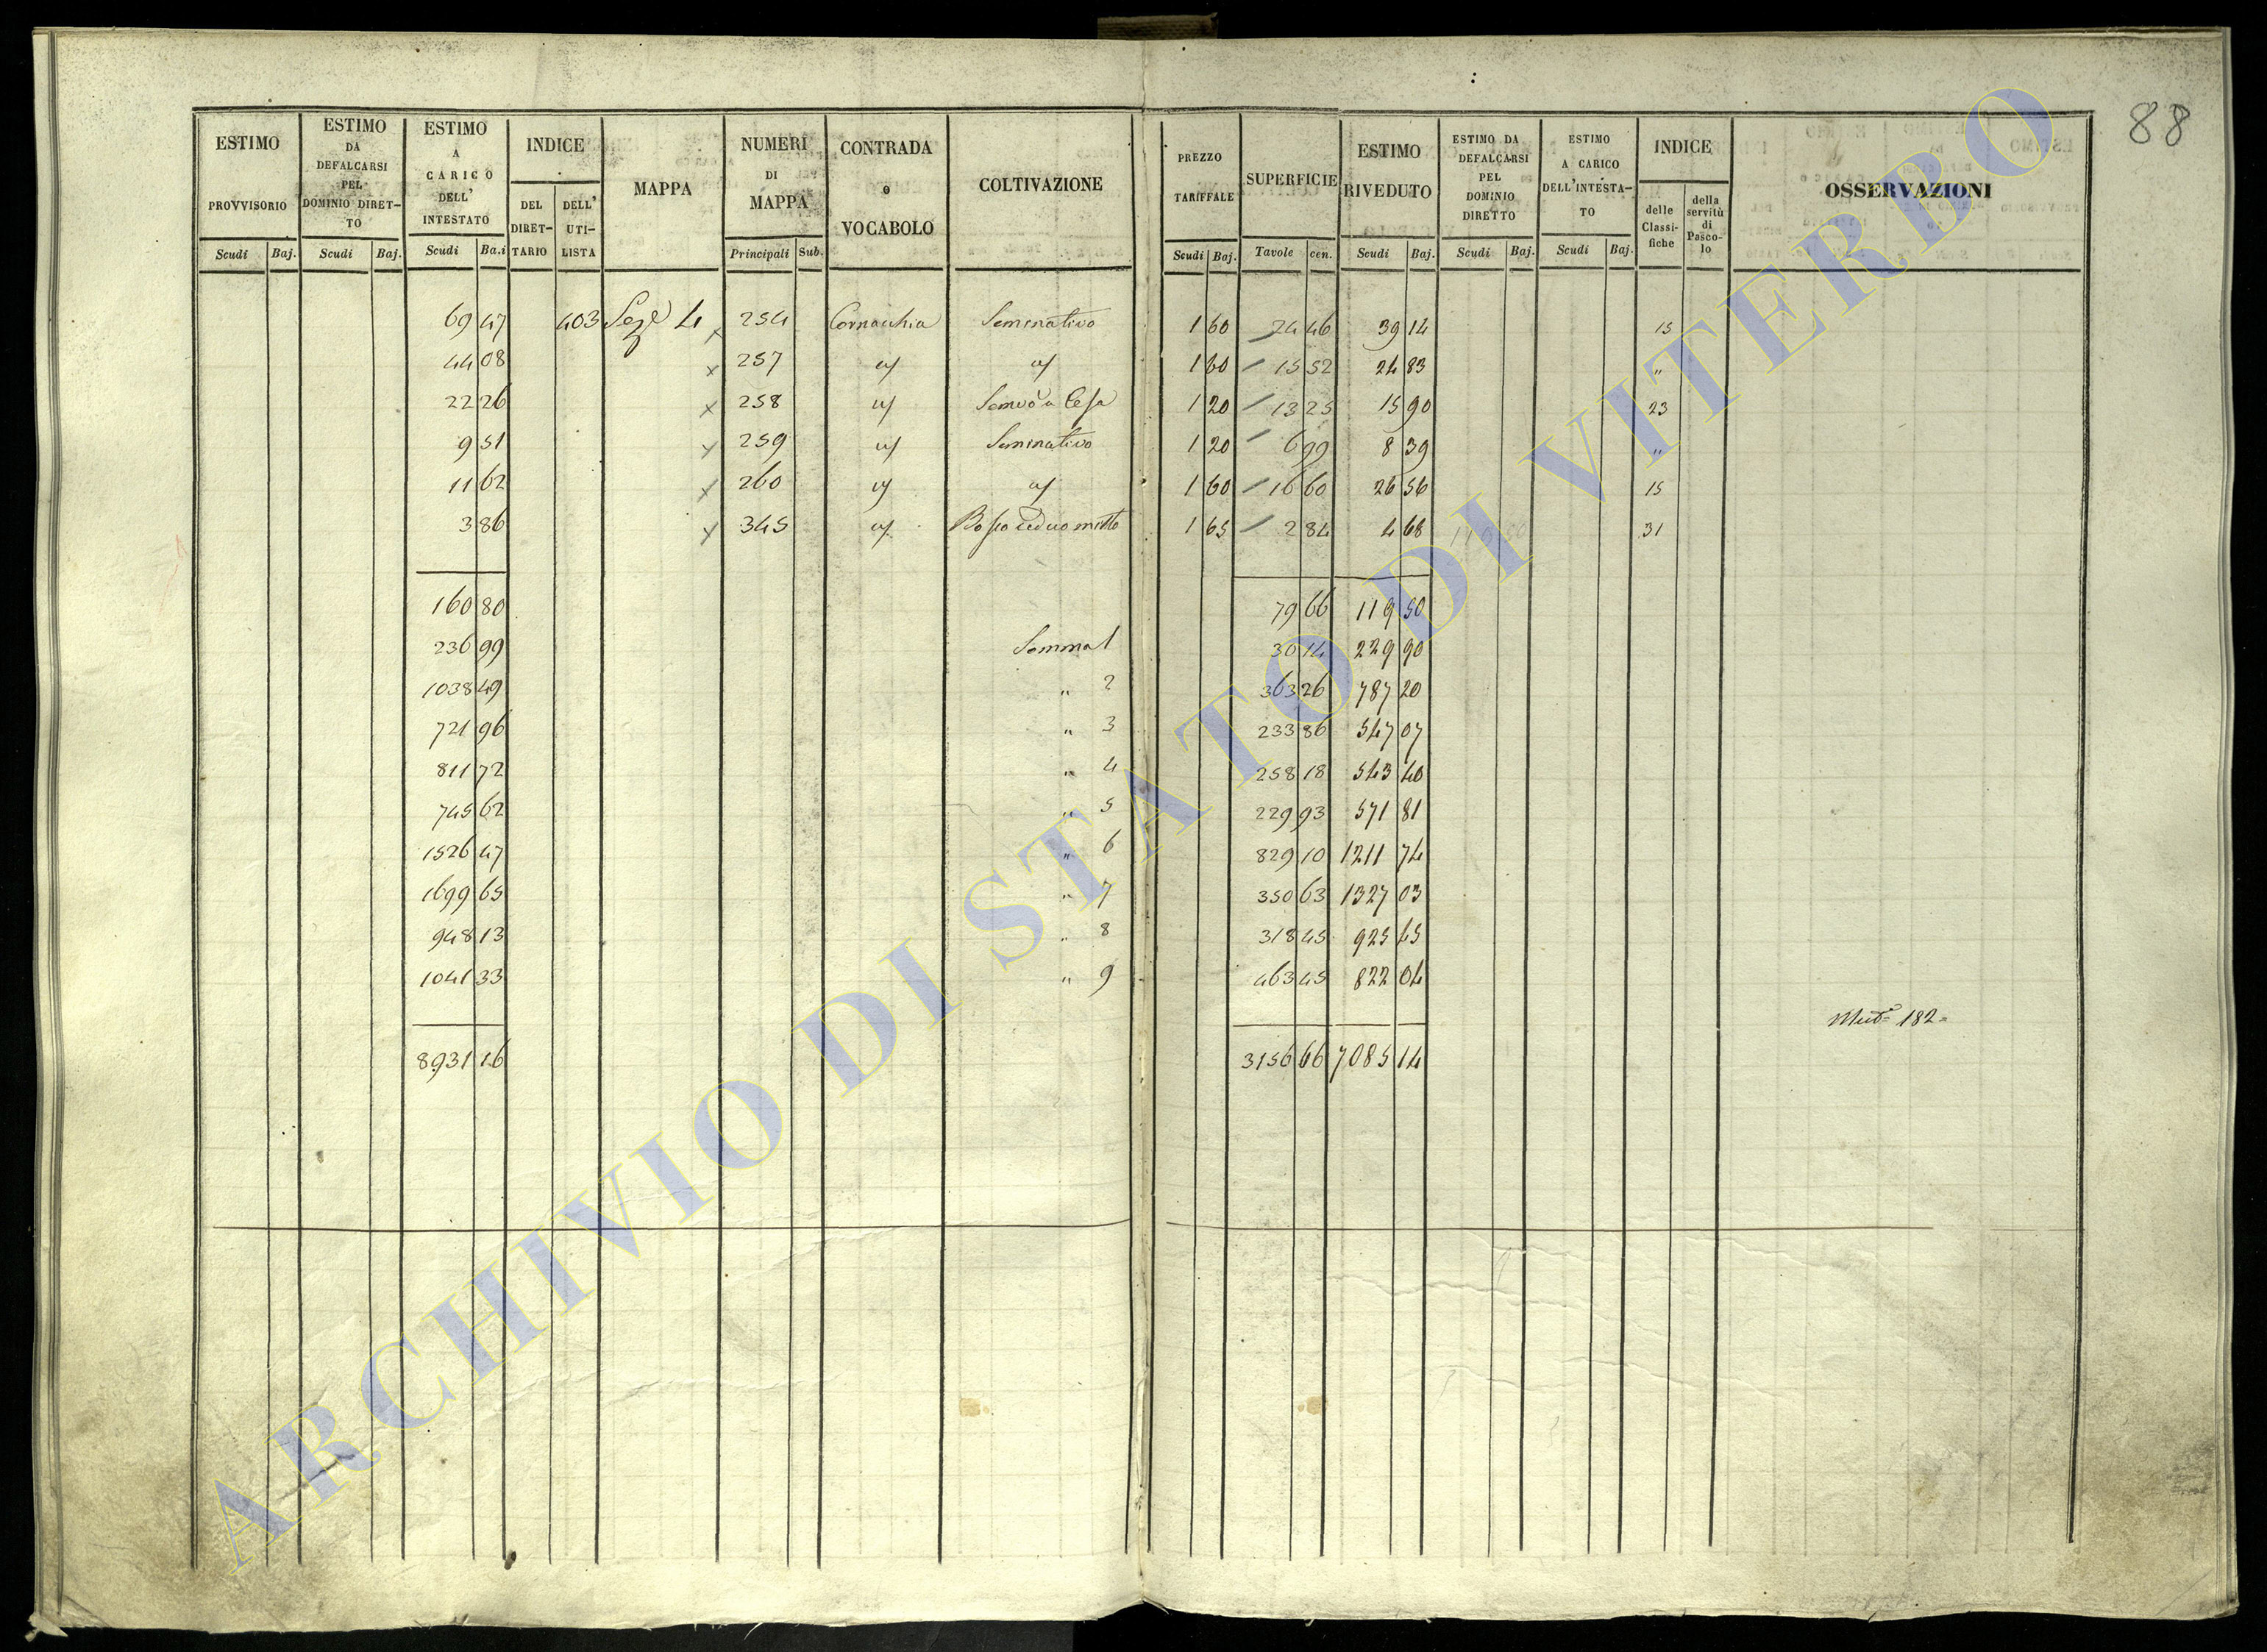 88
ESTIMO PROVVISORIO Scudi Baj.
ESTIMO DA DEFALCARSI PEL DOMINIO DIRET- TO Scudi Baj.
ESTIMO A CARICO DELL' INTESTATO Scudi Ba.i
INDICE DEL DIRET- TARIO DELL' UTI- LISTA
MAPPA
NUMERI DI MAPPA Principali Sub.
CONTRADA o VOCABOLO
COLTIVAZIONE
PREZZO TARIFFALE Scudi Baj.
SUPERFICIE Tavole cen.
ESTIMO RIVEDUTO Scudi Baj.
ESTIMO DA DEFALCARSI PEL DOMINIO DIRETTO Scudi Baj.
ESTIMO A CARICO DELL'INTESTA- TO Scudi Baj.
INDICE delle Classi- fiche della servitù di Pasco- lo
OSSERVAZIONI
69 47 403 Seze 4 x 254 Cornacchia Seminativo 1 60 24 46 39 14 15
44 08 x 257 " " 1 60 15 52 24 83 "
22 26 x 258 " 1 20 13 25 15 90 23
9 51 x 259 " Seminativo 1 20 6 99 8 39 "
11 62 x 260 " " 1 60 16 60 26 56 15
3 86 x 345 " Bosco ceduo misto 1 65 2 84 4 68 31
160 80 79 66 119 50
236 99 Somma 1 30 14 229 90
1038 49 " 2 363 26 787 20
721 96 " 3 233 86 547 07
811 72 " 4 258 18 543 40
745 62 " 5 229 93 571 81
1526 47 " 6 829 10 1211 74
1699 65 " 7 350 63 1327 03
948 13 " 8 318 45 925 45
1041 33 " 9 463 45 822 04
Mut.e 182=
8931 16 3156 66 7085 14
ARCHIVIO DI STATO DI VITERBO